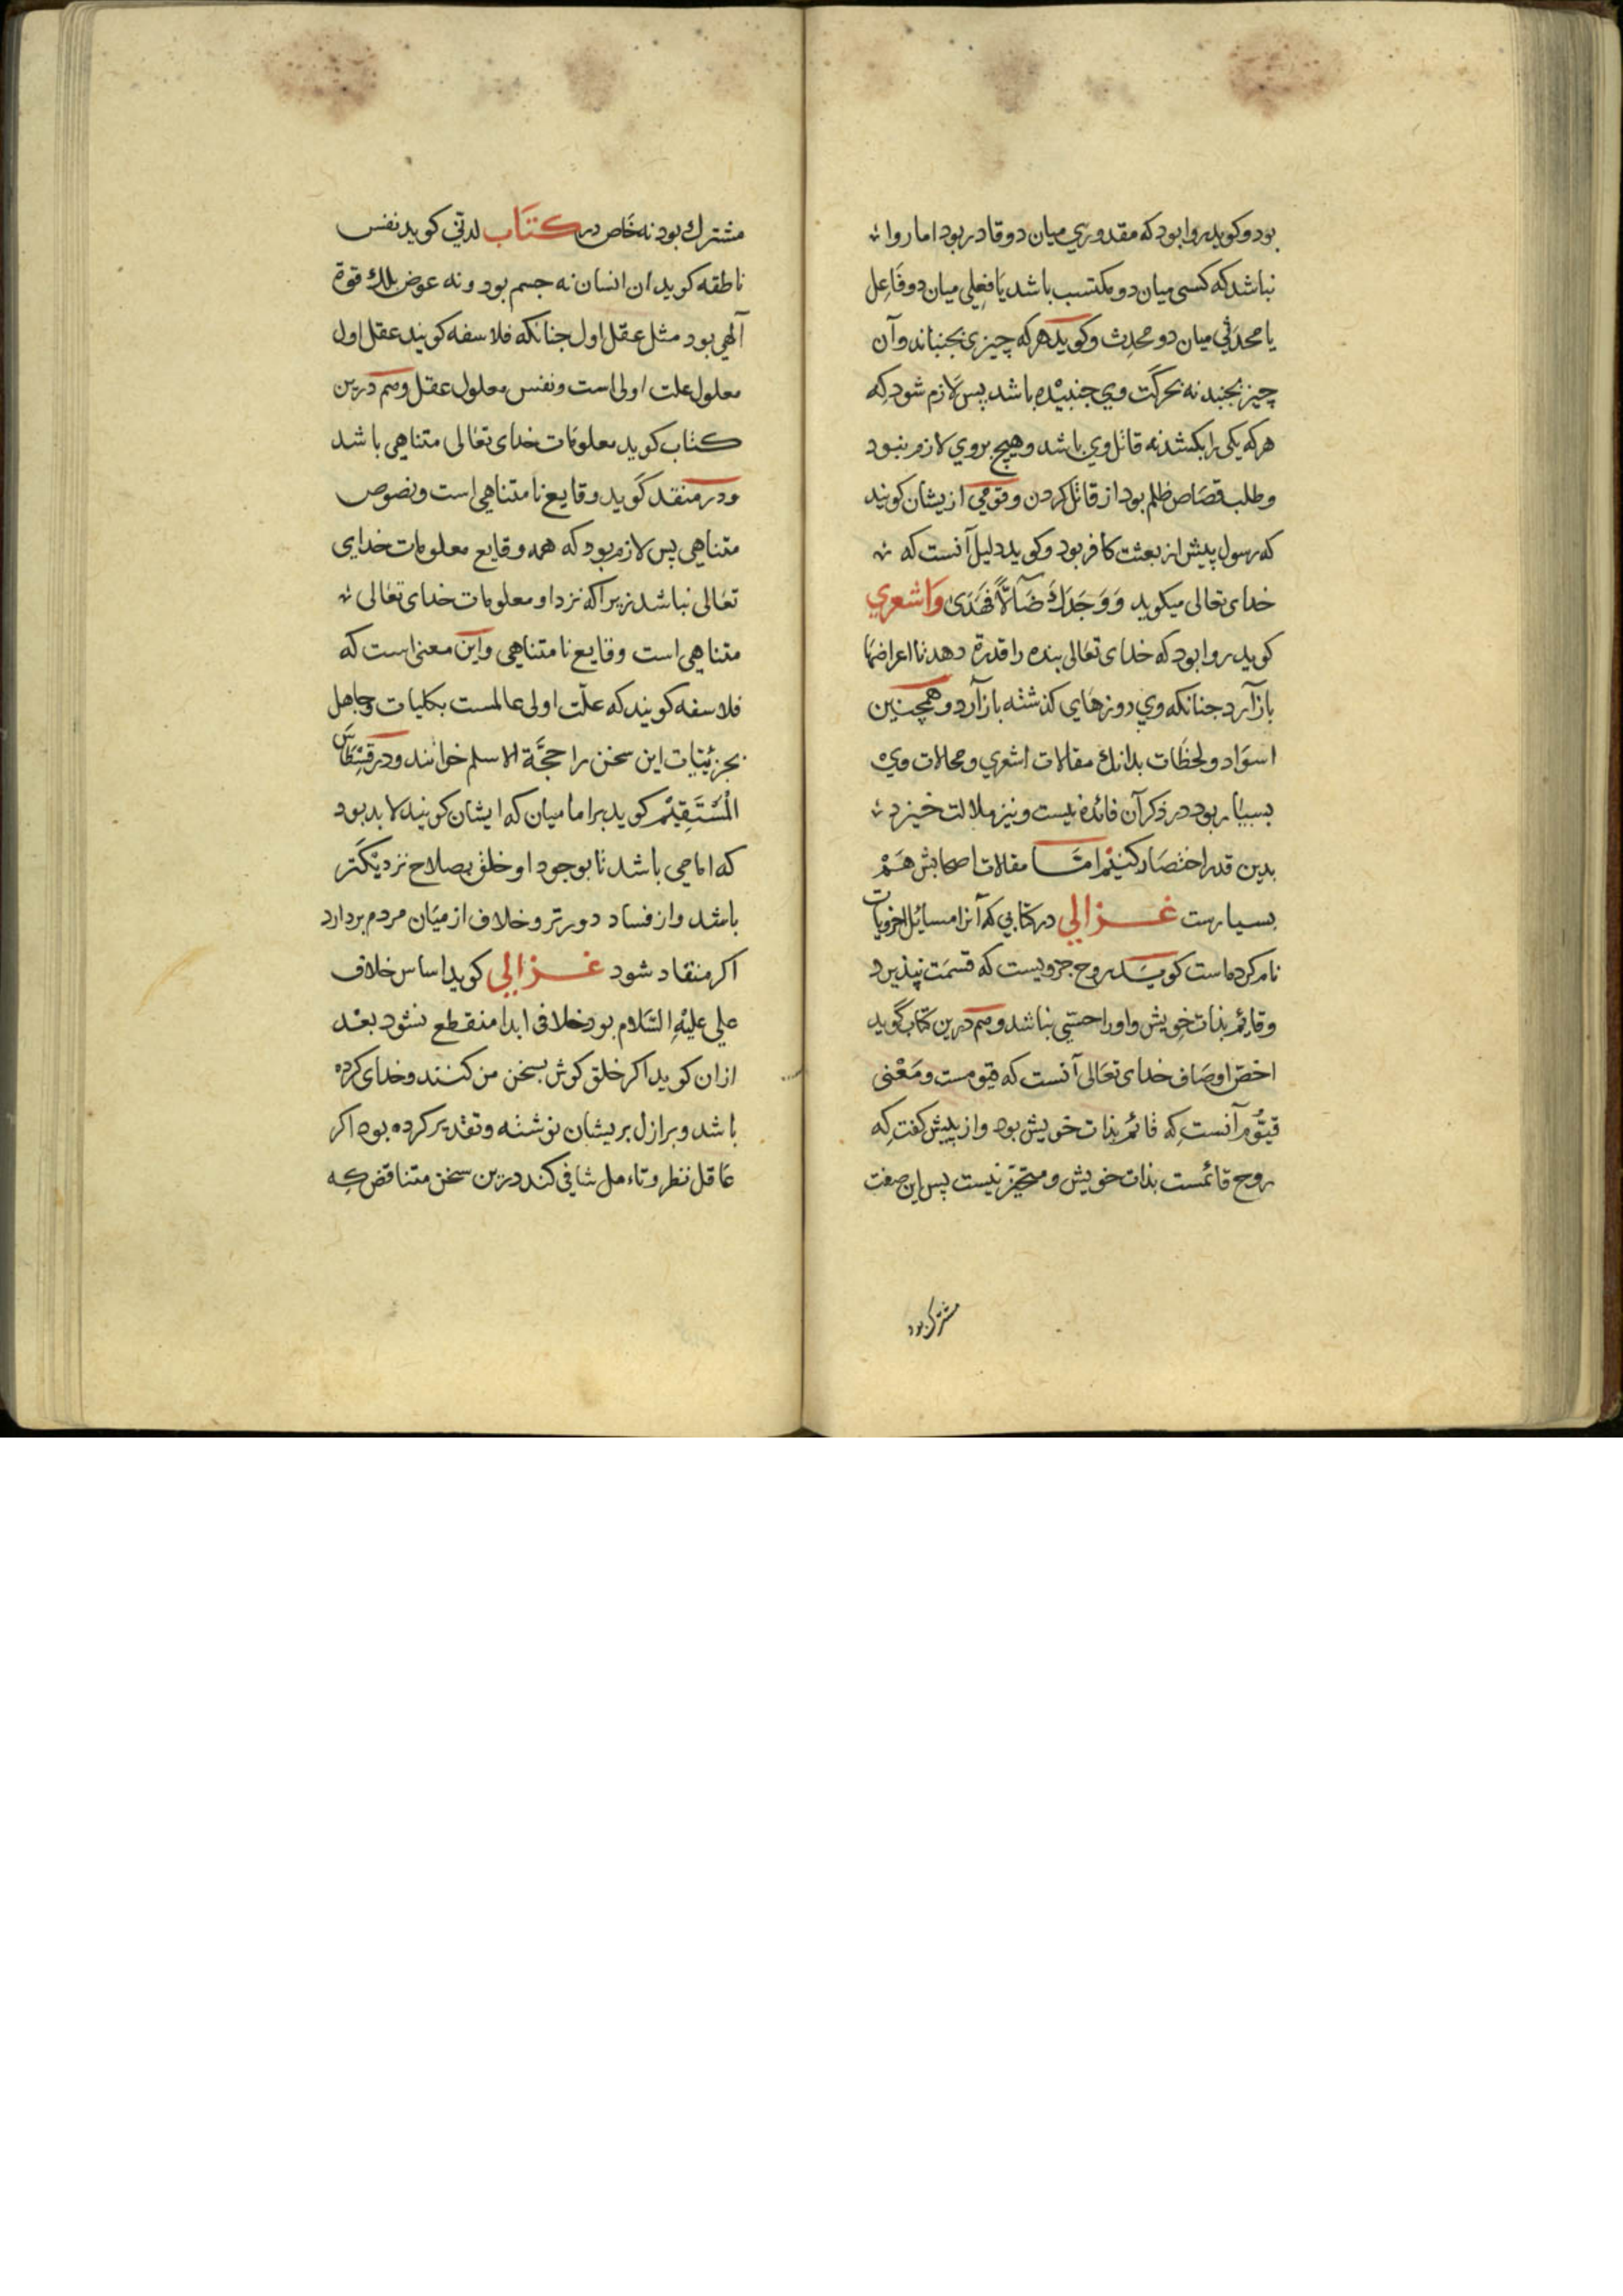 بود و کوید روا بود که مقدوری میان دو قادر بود اما روا
نباشد که کسی میان دو مکتسب باشد یا فعلی میان دو فاعل
یا محدثی میان دو محدث و کوید هر که چیزی بجنباند و آن
چیز بجنبد نه بحرکت وی جنبیده باشد پس لازم شود که
هر که یکی را بکشد نه قاتل وی باشد و هیچ بر وی لازم نبود
و طلب قصاص ظلم بود از قاتل کردن و قومی ازیشان کویند
که رسول پیش از بعثت کافر بود و کوید دلیل آنست که
خدای تعالی میکوید وَوَجَدَكَ ضَآلاًّ فَهَدَىٰ و اشعری
کوید روا بود که خدای تعالی بنده را قدرة دهد تا اعراضها
باز آرد جنانکه وی روزهای کذشته باز آرد و همچنین
اسواد و لحظات بدانک مقالات اشعری و محالات وی
بسیار بود در ذکر آن فائده نیست و نیز ملالت خیزد
بدین قدر اختصار کنیم امّا مقالات اصحابش هم
بسیارست غزالی در کتابی که آنرا مسائل اخرویات
نام کرده است کوید روح جزویست که قسمت نپذیرد
و قایم بذات خویش و او را حسّی نباشد و هم درین کتاب گوید
اخصّ اوصاف خدای تعالی آنست که قیومست و معنی
قیّوم آنست که قائم بذات خویش بود و از پیش کفت که
روح قائمست بذات خویش و متحیّز نیست پس این صفت
مشترک بود
مشترك بود نه خاص در کتاب لدنّی کوید نفس
ناطقه کوید ان انسان نه جسم بود و نه عرض بلك قوة
آلهی بود مثل عقل اول جنانکه فلاسفه کویند عقل اول
معلول علت اولی است و نفس معلول عقل و هم درین
کتاب کوید معلومات خدای تعالی متناهی باشد
و در منقد کوید وقایع نامتناهی است و نصوص
متناهی پس لازم بود که همه وقایع معلومات خدایی
تعالی نباشد زیرا که نزد او معلومات خدای تعالی
متناهی است وقایع نامتناهی و این معنی است که
فلاسفه کویند که علّت اولی عالمست بکلیات و جاهل
بجزئیات این سخن را حجّة الاسلم خوانند و در قسطاس
المستقیم کوید بر امامیان که ایشان کویند لا بد بود
که امامی باشد تا بوجود او خلق بصلاح نزدیکتر
باشد و از فساد دورتر و خلاف از میان مردم بردارد
اکر منقاد شود غزالی کوید اساس خلاف
علی علیه السّلام بود خلافی ابدا منقطع نشود بعد
ازان کوید اکر خلق کوش بسخن من کنند و خدای کرده
باشد و بر ازل بریشان نوشته و تقدیر کرده بود اکر
عاقل نظر و تاءمل شافی کند درین سخن متناقض که